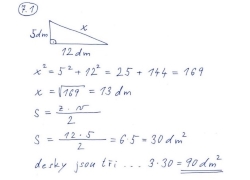 7.1
5dm
x
12 dm
x² = 5² + 12² = 25 + 144 = 169
x = √169 = 13 dm
S = z · v / 2
S = 12 · 5 / 2 = 6·5 = 30 dm²
desky jsou tři ... 3·30 = 90 dm²